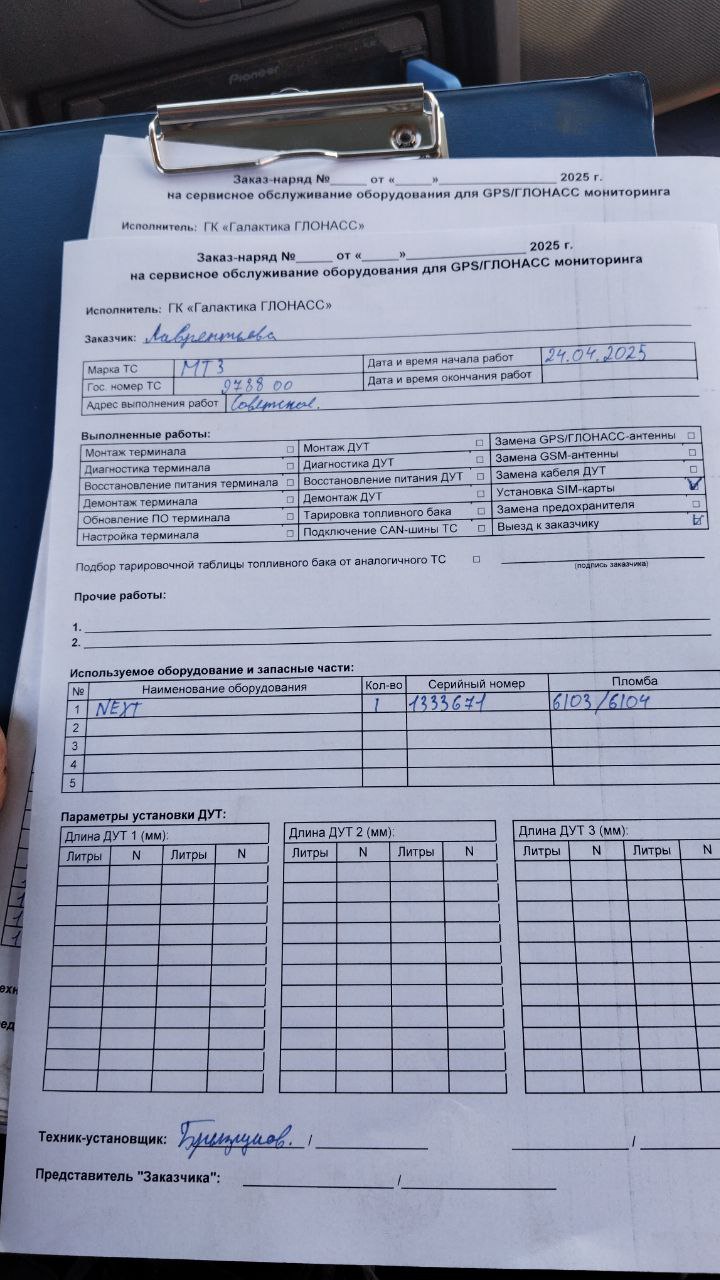 Pioneer
Заказ-наряд №_____ от «_____»________________ 2025 г.
на сервисное обслуживание оборудования для GPS/ГЛОНАСС мониторинга
Исполнитель: ГК «Галактика ГЛОНАСС»
Заказ-наряд №_____ от «_____»________________ 2025 г.
на сервисное обслуживание оборудования для GPS/ГЛОНАСС мониторинга
Исполнитель: ГК «Галактика ГЛОНАСС»
Заказчик: Лаврентьева
Марка ТС МТЗ Дата и время начала работ 24.04.2025
Гос. номер ТС 9788 00 Дата и время окончания работ
Адрес выполнения работ Советское.
Выполненные работы:
Монтаж терминала □ Монтаж ДУТ □ Замена GPS/ГЛОНАСС-антенны □
Диагностика терминала □ Диагностика ДУТ □ Замена GSM-антенны □
Восстановление питания терминала □ Восстановление питания ДУТ □ Замена кабеля ДУТ □
Демонтаж терминала □ Демонтаж ДУТ □ Установка SIM-карты ☑
Обновление ПО терминала □ Тарировка топливного бака □ Замена предохранителя □
Настройка терминала □ Подключение CAN-шины ТС □ Выезд к заказчику ☑
Подбор тарировочной таблицы топливного бака от аналогичного ТС □
(подпись заказчика)
Прочие работы:
1.
2.
Используемое оборудование и запасные части:
№ Наименование оборудования Кол-во Серийный номер Пломба
1 NEXT 1 1333671 6103/6104
2
3
4
5
Параметры установки ДУТ:
Длина ДУТ 1 (мм): Длина ДУТ 2 (мм): Длина ДУТ 3 (мм):
Литры N Литры N Литры N Литры N Литры N Литры N
Техник-установщик: /
Представитель "Заказчика": /